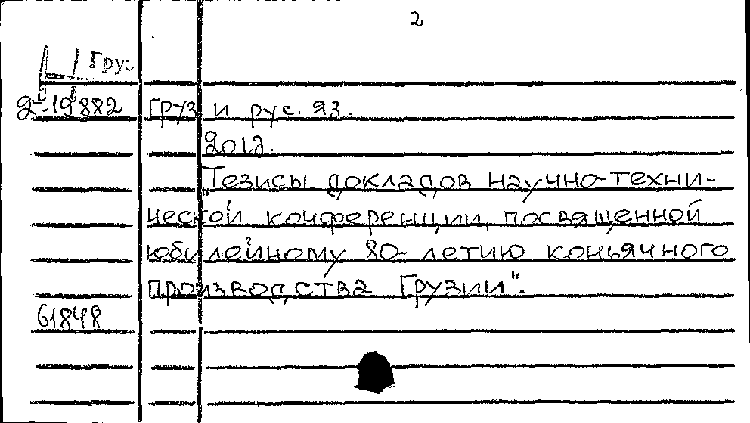 2
Груз
2-19882 Груз и рус. яз.
"Тезисы докладов научно-техни-
ческой конференции, посвященной
юбилейному 80-летию коньячного
производства Грузии".
61848